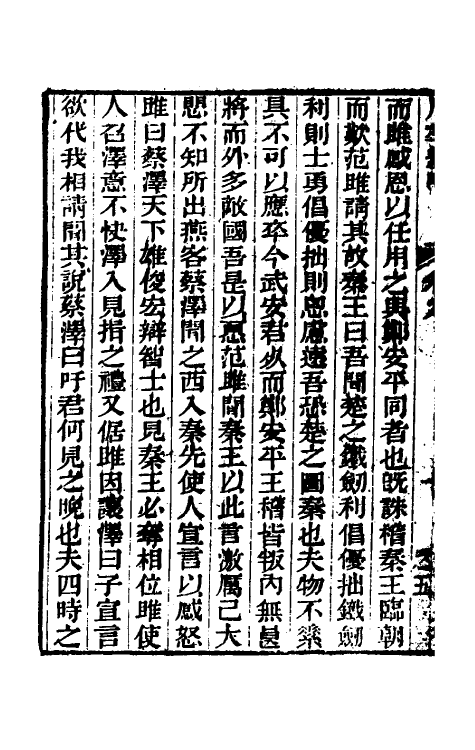 而雎感恩以任用之與鄭安平同者也旣誅稽秦王臨朝
而歎范雎請其故秦王曰吾聞楚之鐵劒利倡優拙鐵劒
利則士勇倡優拙則思慮遠吾恐楚之圖秦也夫物不素
具不可以應卒今武安君死而鄭安平王稽皆叛內無良
將而外多敵國吾是以憂范雎聞秦王以此言激厲己大
慙不知所出燕客蔡澤聞之西入秦先使人宣言以感怒
雎曰蔡澤天下雄俊宏辯智士也見秦王必奪相位雎使
人召澤意不快澤入見揖之禮又倨雎因讓澤曰子宣言
欲代我相請聞其說蔡澤曰吁君何見之晚也夫四時之